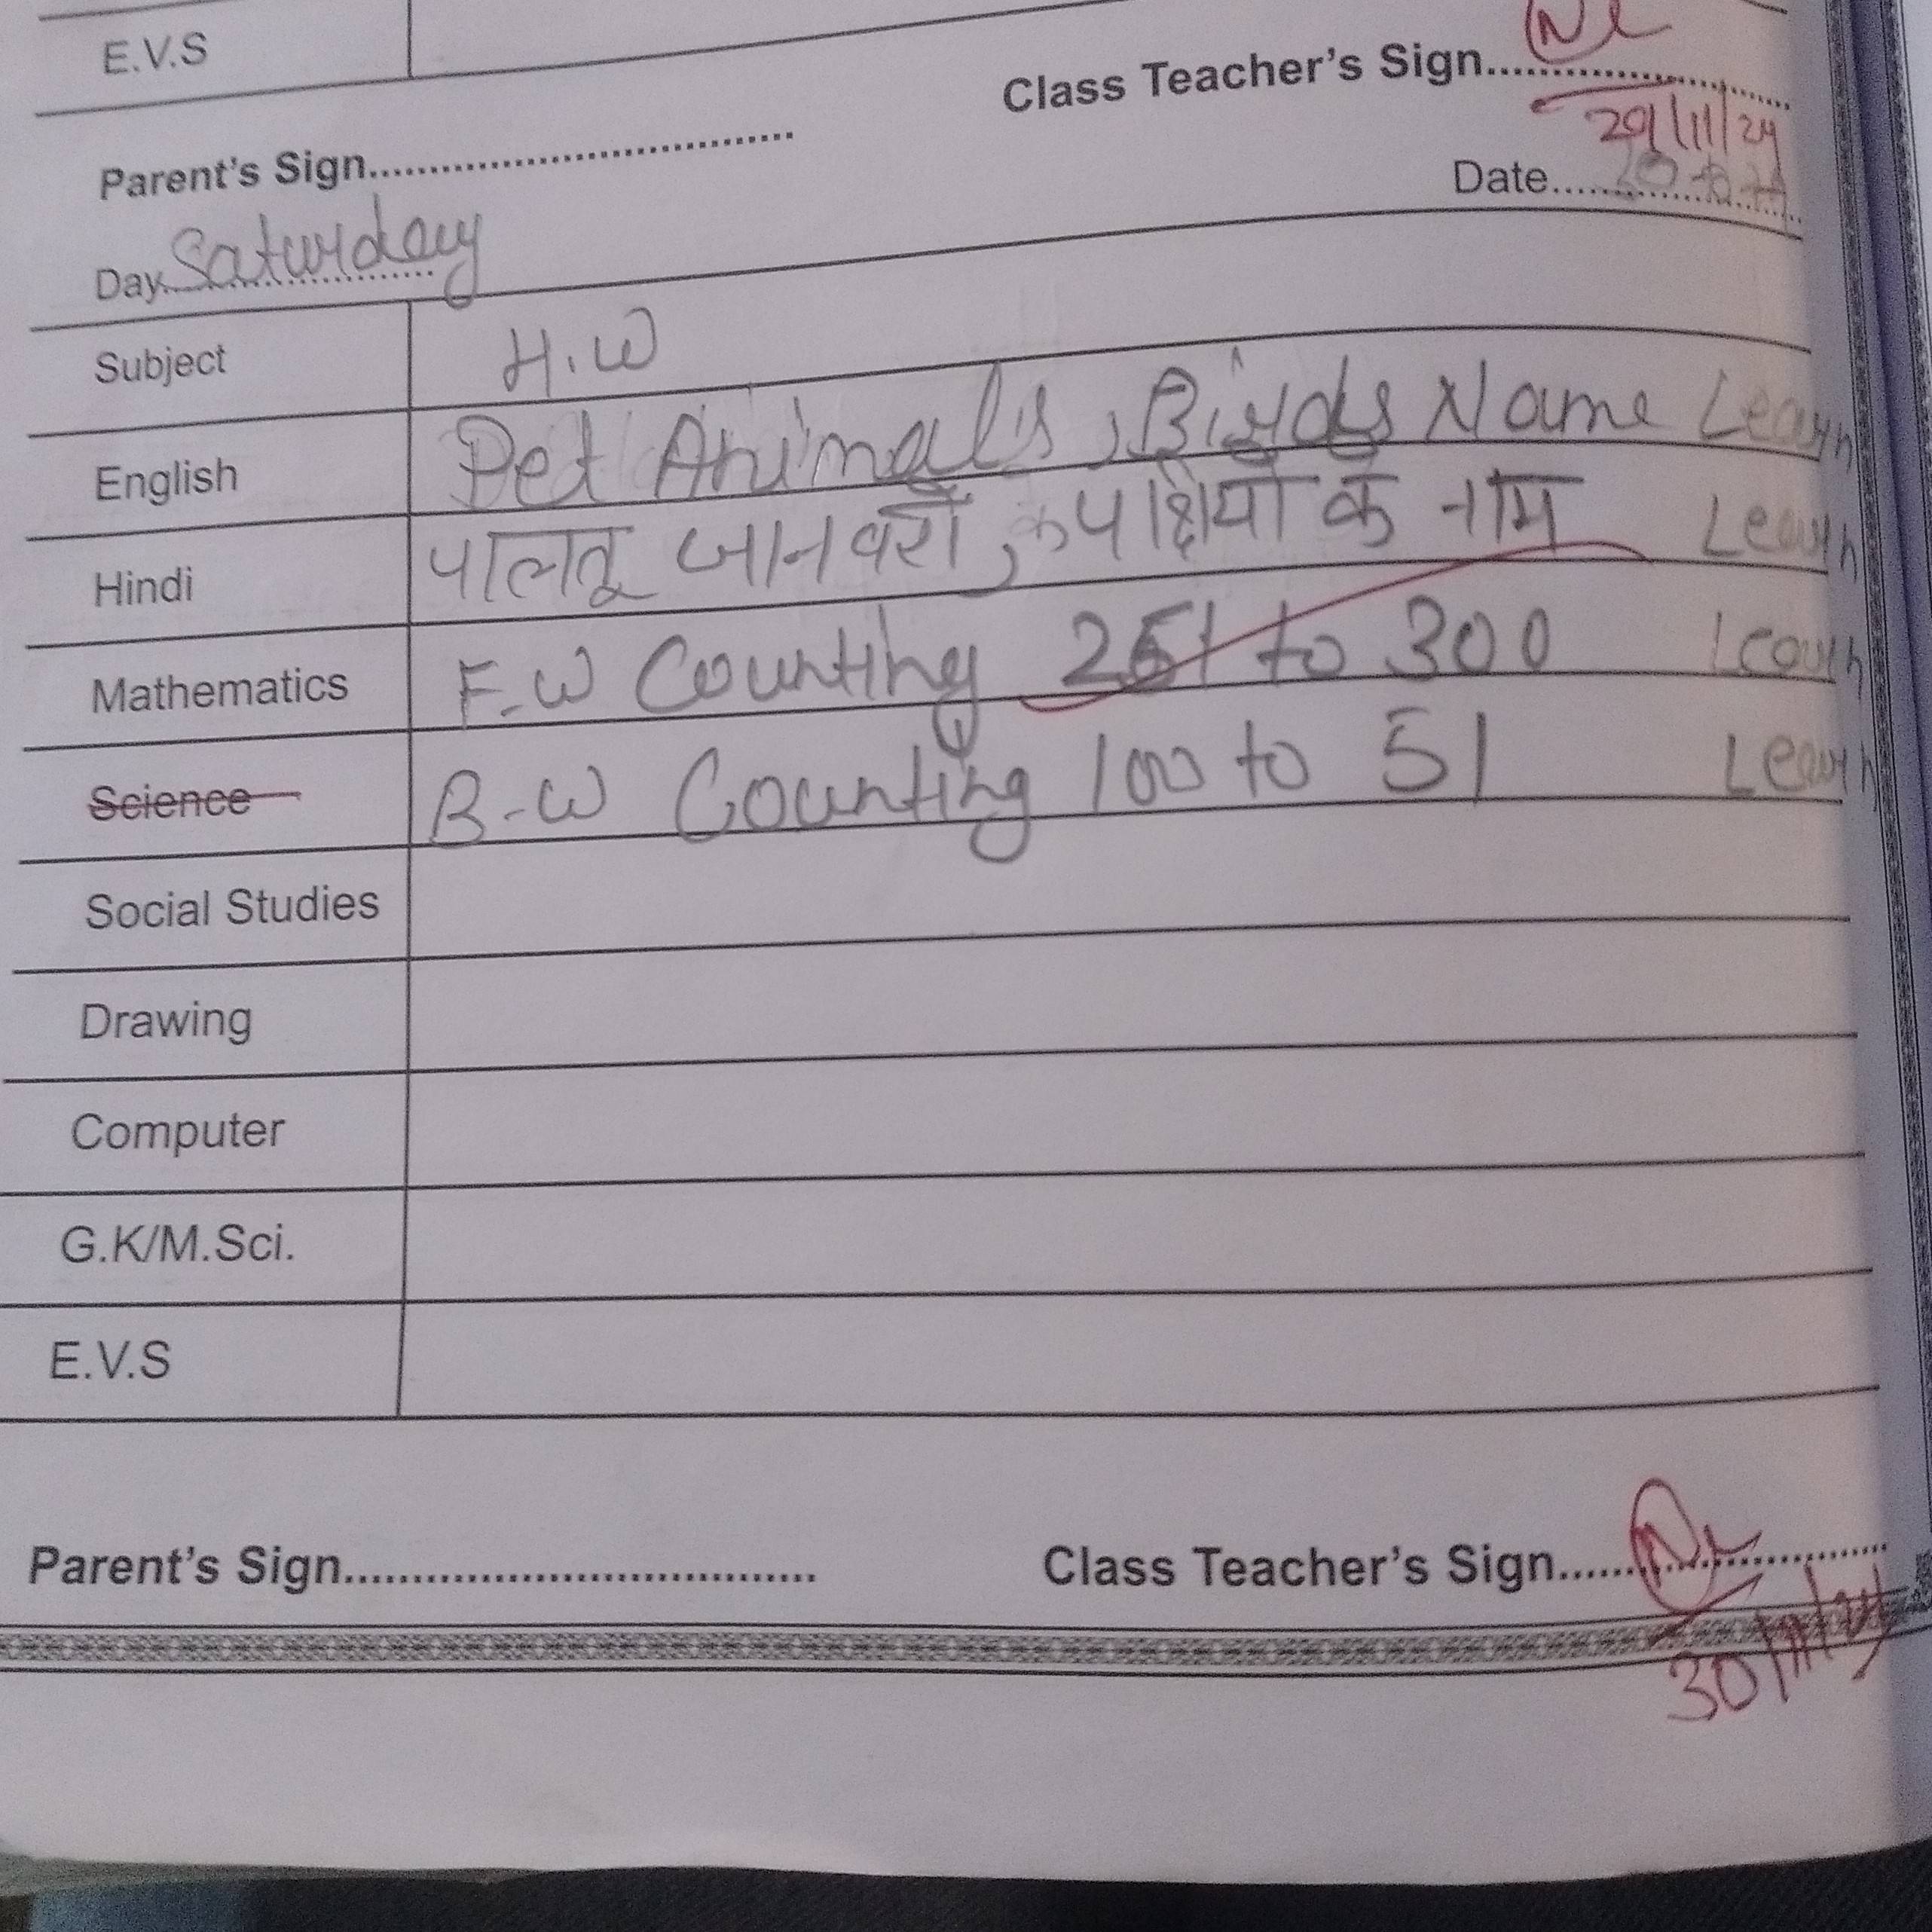 E.V.S
Class Teacher's Sign..................
29/11/24
Parent's Sign..................
Date..................
Day Saturday
Subject H.W
English Pet Animals, Birds Name Learn
Hindi पालतू जानवरों, पक्षियों के नाम Learn
Mathematics F.W Counting 251 to 300 Learn
Science B-W Counting 100 to 51 Learn
Social Studies
Drawing
Computer
G.K/M.Sci.
E.V.S
Parent's Sign..................
Class Teacher's Sign..................
30/11/24